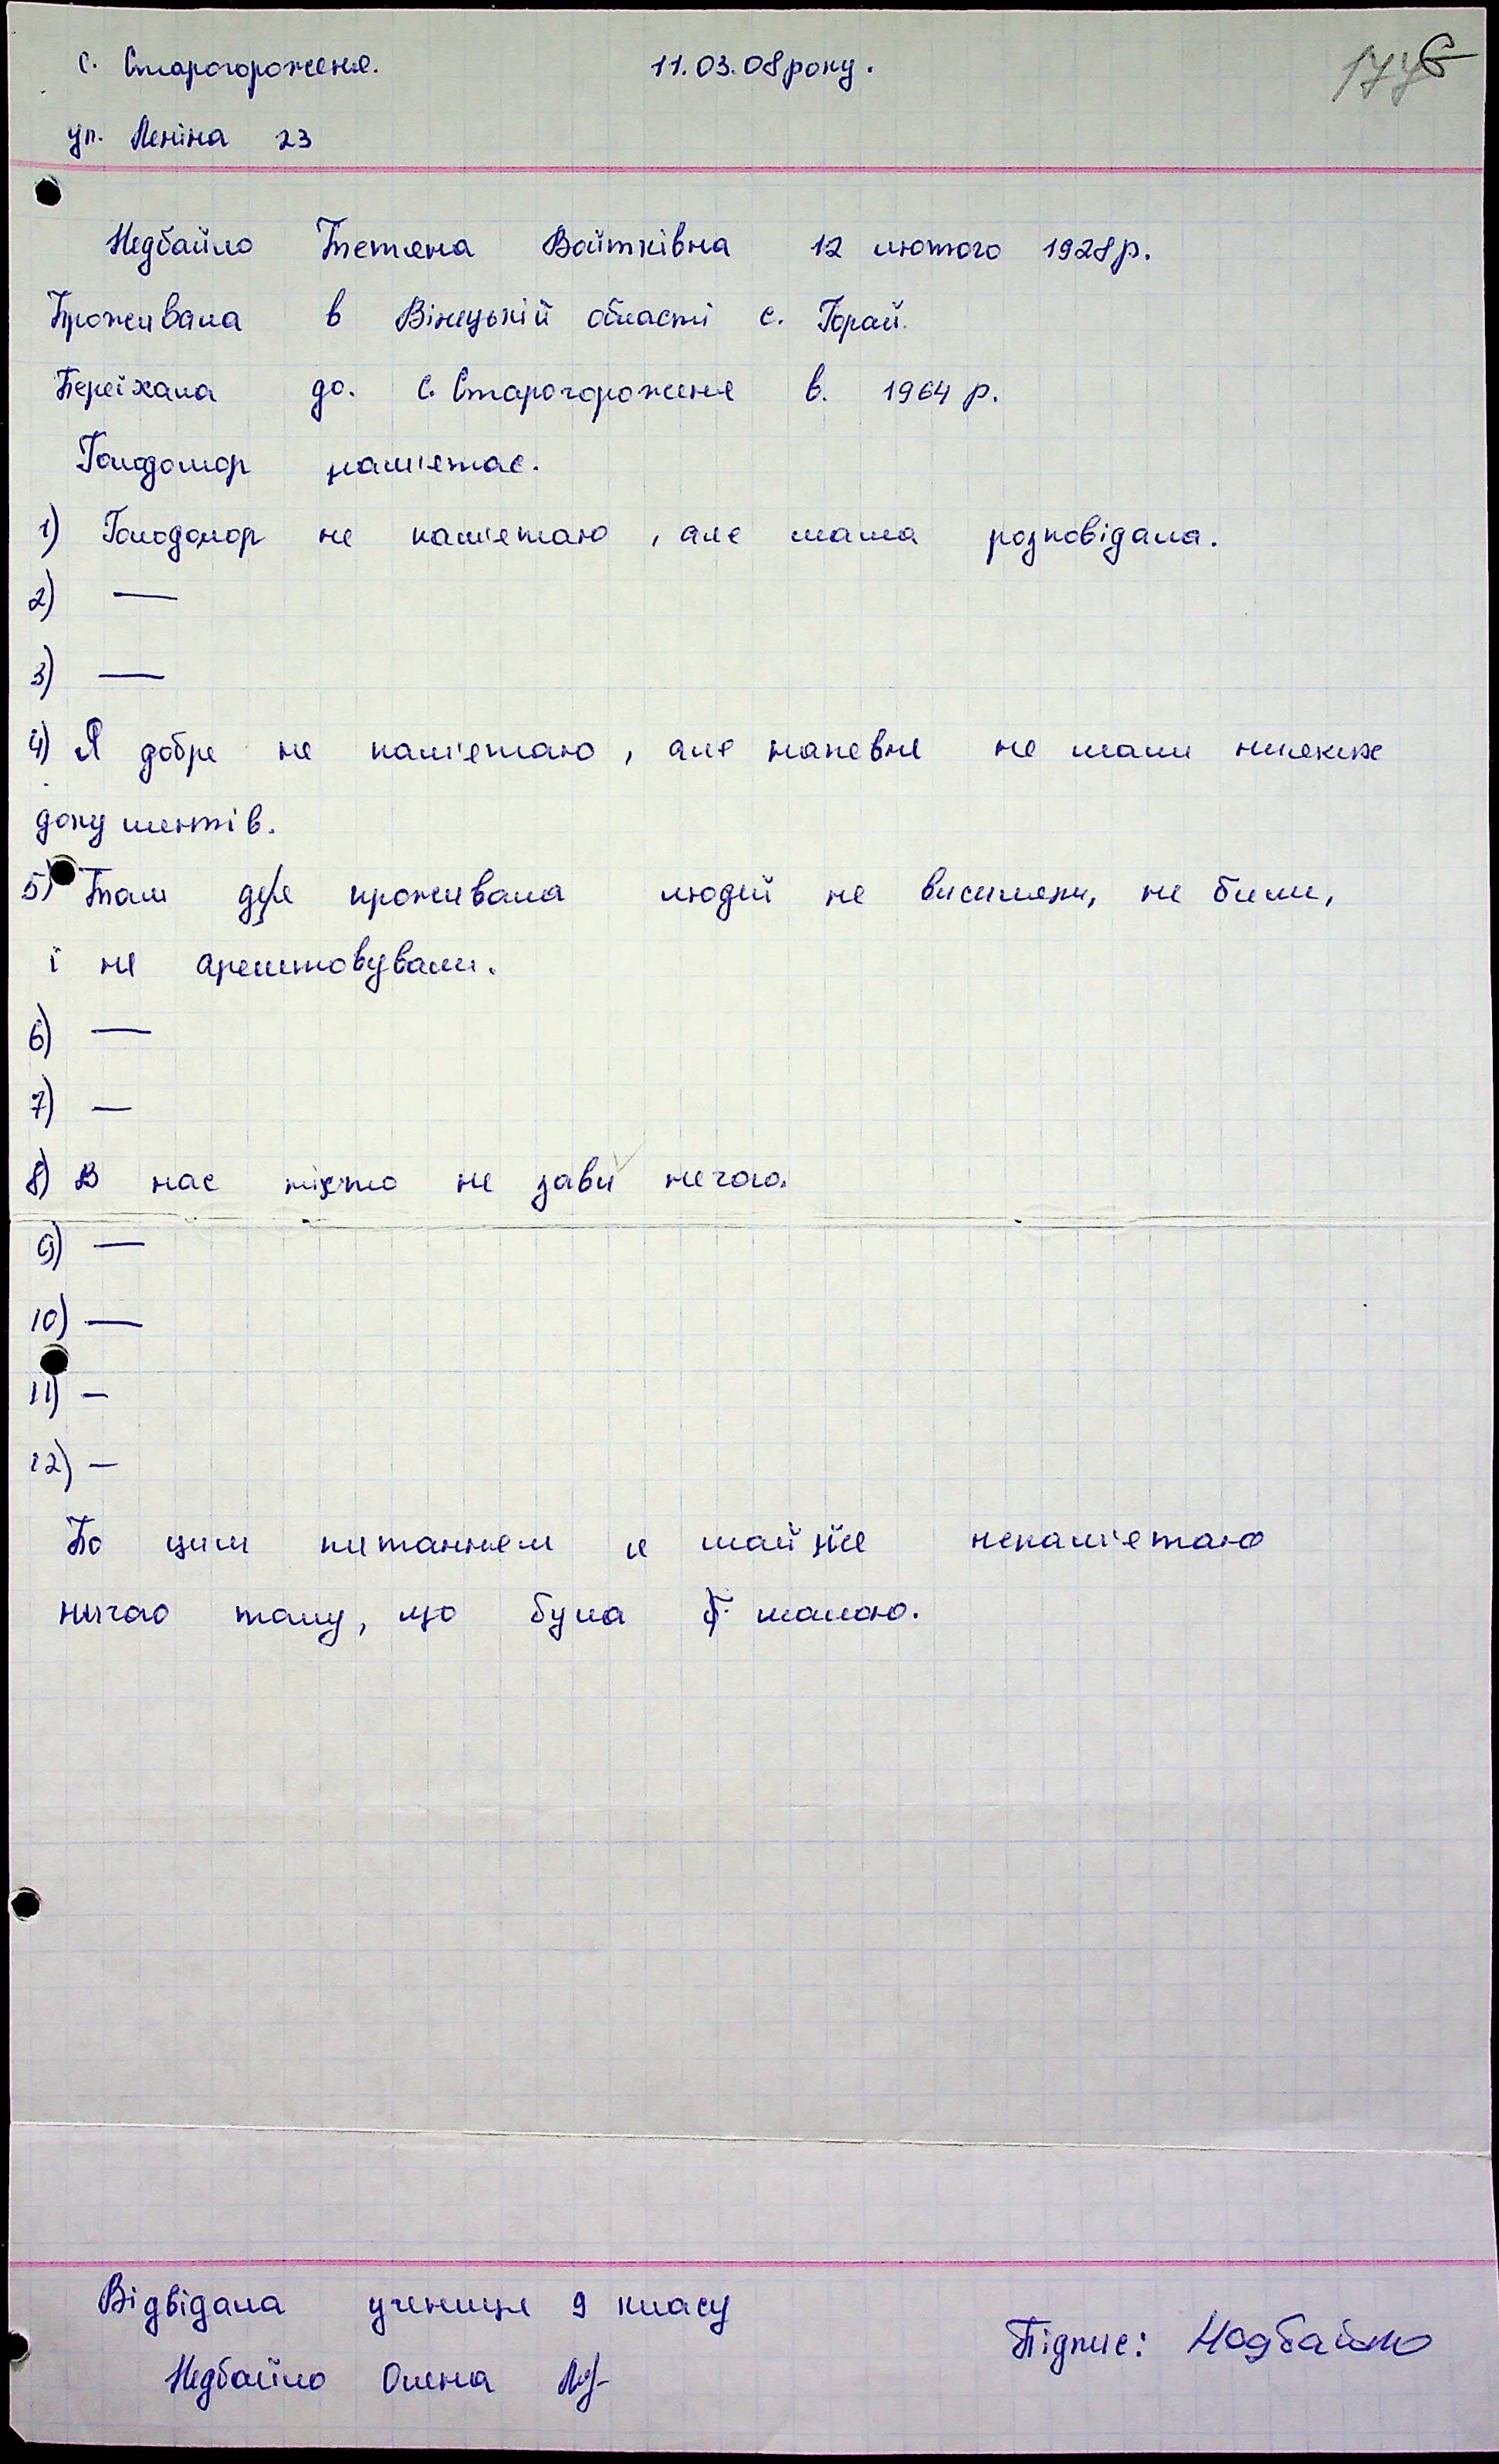 с. Старогороженя. 11.03.08року.
ул. Леніна 23
Недбайло Тетяна Войтківна 12 лютого 1928р.
Проживала в Вінецькій області с. Горай.
Переїхала до. с. Старогороженя в. 1964 р.
Голодомор пам'ятає.
1) Голодомор не пам'ятаю, але мама розповідала.
2) —
3) —
4) Я добре не пам'ятаю, але напевне не мали нияких
документів.
5) Там де я проживала людей не висиляли, не били,
і не арештовували.
6) —
7) —
8) В нас ніхто не зави нечого.
9) —
10) —
11) —
12) —
По цим питанням я майже непам'ятаю
нычого тому, що була малою.
Відвідала учениця 9 класу
Підпис: Недбайло
Недбайло Олена